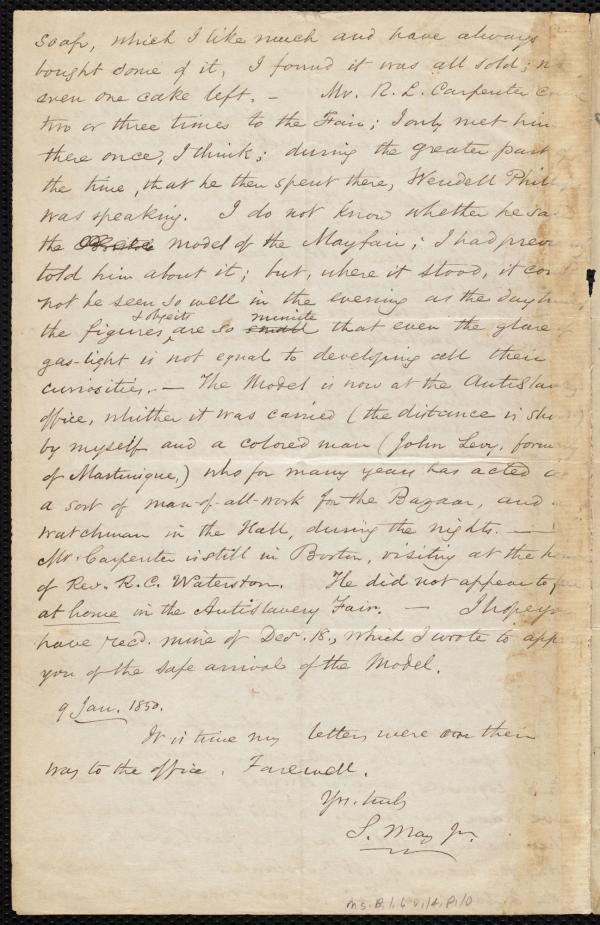 soap, which I like much and have always
bought some of it, I found it was all sold; n
even one cake left. – Mr. R. L. Carpenter c
two or three times to the Fair; I only met him
there once, I think; during the greater part
the time, that he then spent there, Wendell Phill
was speaking. I do not know whether he sa
the model of the Mayfair; I had prev
told him about it; but, where it stood, it co
not be seen so well in the evening as the dayti
& objects minute
the figures, are so small that even the glare
gas-light is not equal to developing all their
curiosities. — The Model is now at the Antislav
office, whither it was carried (the distance is sh
by myself and a colored man (John Levy, form
of Martinique,) who for many years has acted a
a sort of man-of-all-work for the Bazaar, and
watchman in the Hall, during the nights. —
Mr. Carpenter is still in Boston, visiting at the h
of Rev. R. C. Waterston. He did not appear to
at home in the Antislavery Fair. — I hope yo
have recd. mine of Decr. 18., which I wrote to app
you of the safe arrival of the Model.
9 Jan. 1850.
It is time my letters were on their
way to the office. Farewell.
Yrs. truly
S. May Jr.
Ms. B. 1. 6 v. 14, p. 10